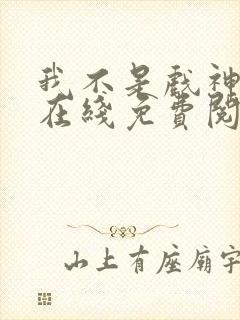 我不是戲神
在綫免費閱
山上有座廟宇